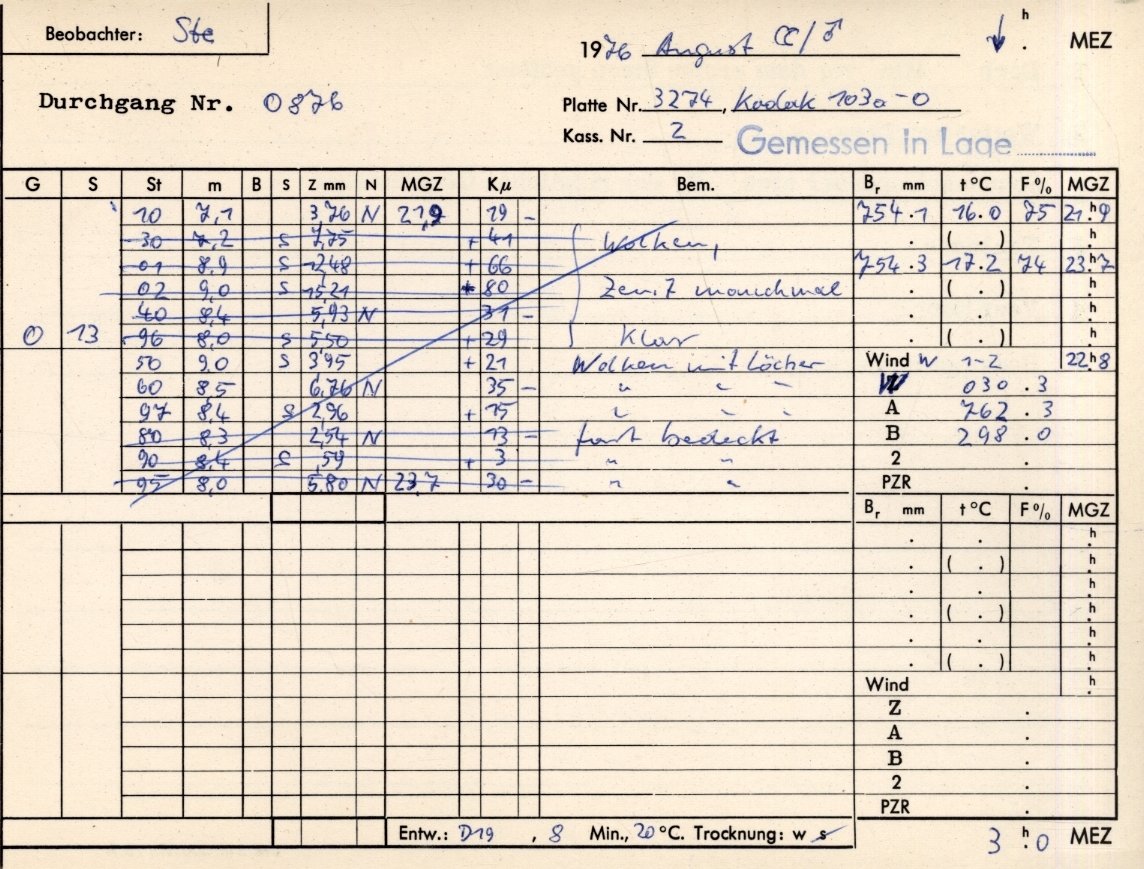 Beobachter: Ste
1976 August
h . MEZ
Durchgang Nr. 0876
Platte Nr. 3274, Kodak 103a-O
Kass. Nr. 2
Gemessen in Lage
G S St m B S Z mm N MGZ Kμ Bem. Br mm t °C F % MGZ
10 7,1 3,76 N 21,9 19 - 754.1 16.0 75 21.h9
30 7,2 S 7,75 + 41 Wolken, . ( . ) .h
01 8,9 S 12,48 + 66 754.3 17.2 74 23.h7
02 9,0 S 15,21 + 80 Zenit manchmal . ( . ) .h
40 8,4 5,93 N 31 - . . .h
0 13 96 8,0 S 5,50 + 29 Klar . ( . ) .h
50 9,0 S 3,95 + 21 Wolken mit Löcher Wind W 1-2 22.h8
60 8,5 6,76 N 35 - " " " 030.3
97 8,4 S 2,96 + 15 " " " A 762.3
80 8,3 2,54 N 13 - fast bedeckt B 298.0
90 8,4 S ,59 + 3 " " 2 .
95 8,0 5,80 N 23,7 30 - " " PZR .
Br mm t °C F % MGZ
. . .h
. ( . ) .h
. . .h
. ( . ) .h
. . .h
. ( . ) .h
Wind .h
Z .
A .
B .
2 .
PZR .
Entw.: D19 , 8 Min., 20 °C. Trocknung: w s
3 h.0 MEZ